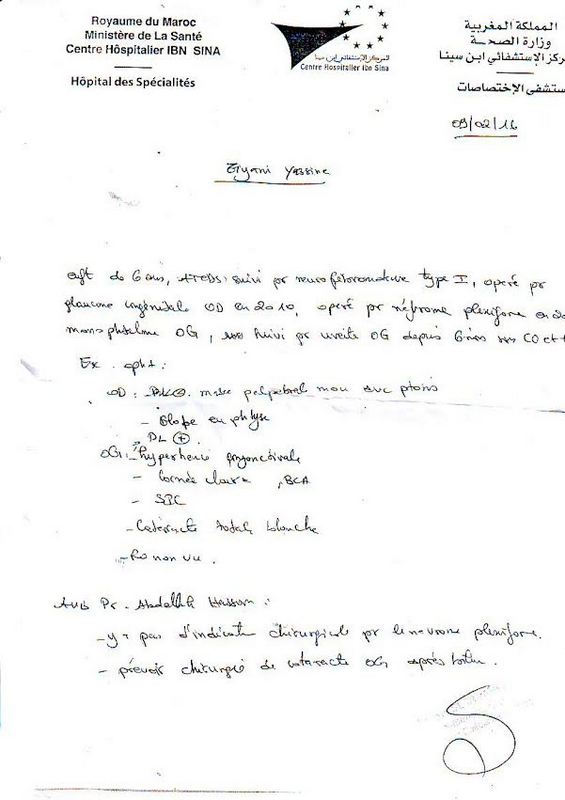 Royaume du Maroc
Ministère de La Santé
Centre Hôspitalier IBN SINA
Hôpital des Spécialités
المركز الإستشفائي ابن سينا
Centre Hospitalier Ibn Sina
المملكة المغربية
وزارة الصحة
ركز الإستشفائي ابن سينا
ستشفى الإختصاصات
09/02/16
Yassine
de 6 ans, ATCDs: suivi pr type I, opéré pr
glaucome OD en 2010, opéré pr plexiforme en 20
OG, suivi pr uveite OG depuis 6 mois
Ex. opht:
OD: masse palpebral mou avec ptosis
- Globe en phtyse
PL +
OG: - hyperhemie conjonctivale
- Cornée claire, BCA
-
- Cataracte totale blanche
- Fo non vu.
Avis Pr. Abdellah Hassan:
- y a pas d'indicat chirurgical pr le nevrome plexiforme.
- prévoir chirurgie de cataracte OG après